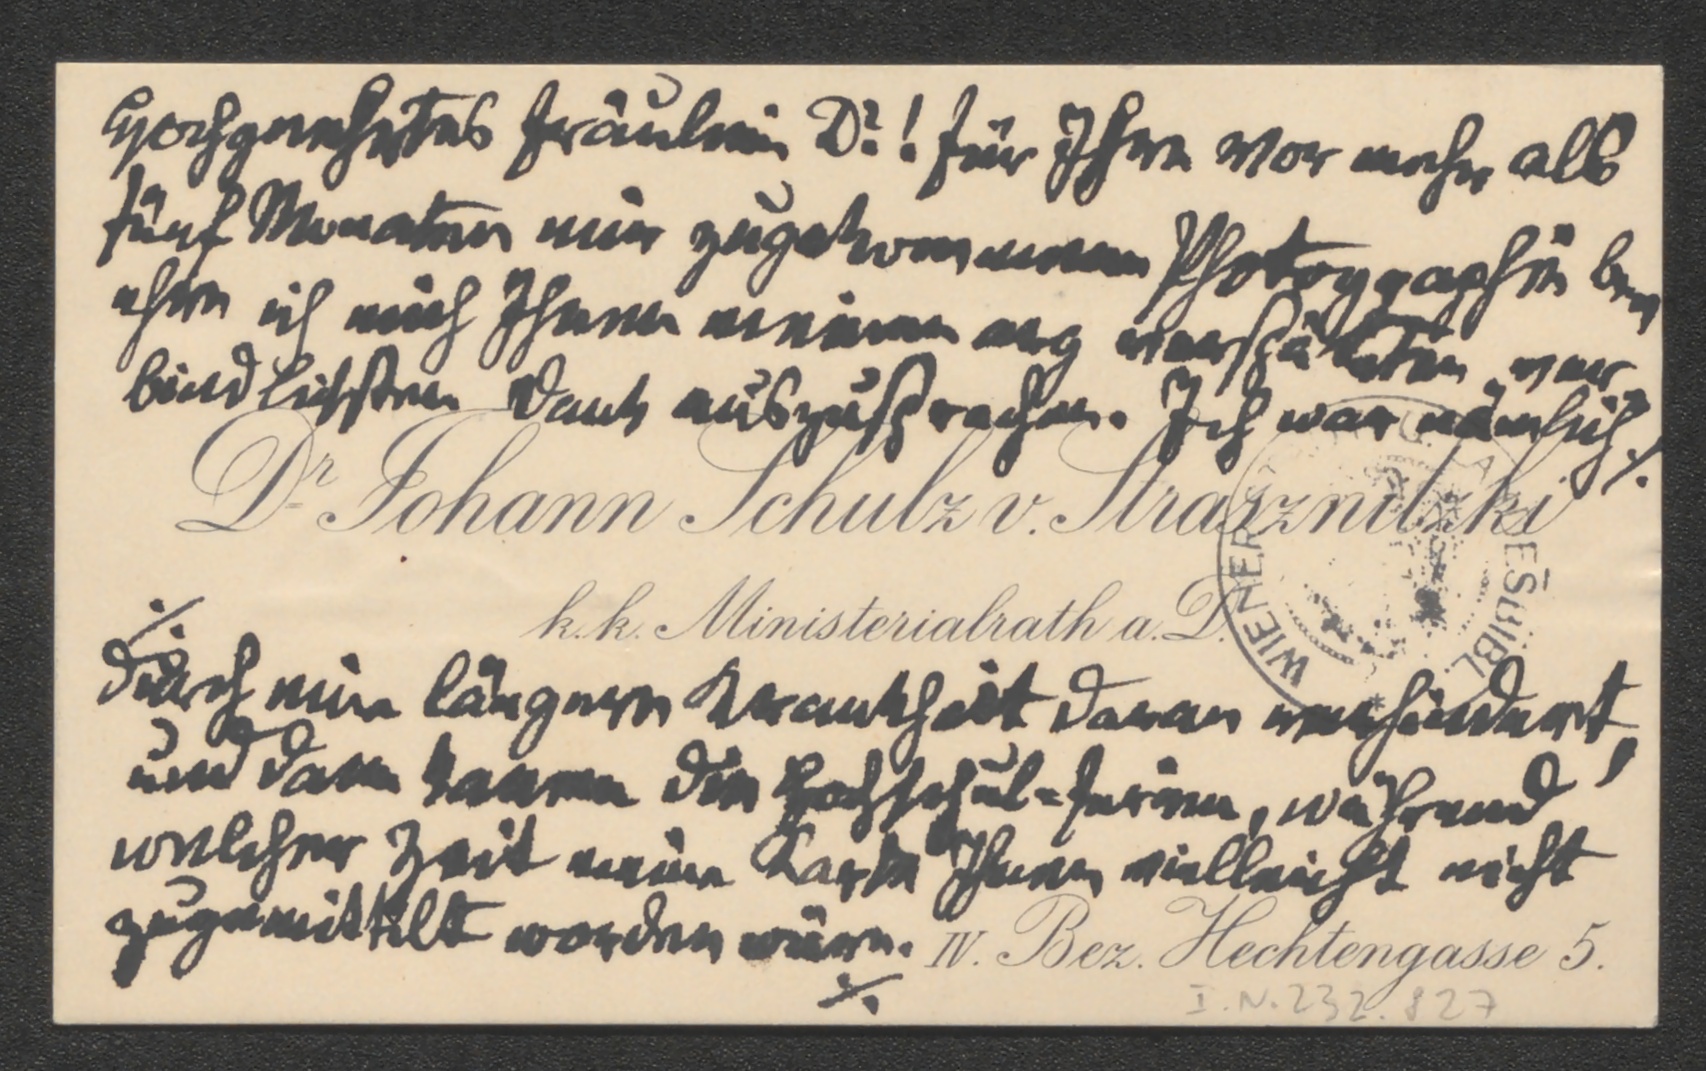 Hochgeehrtes Fräulein Dr.! Für Ihre vor mehr als
fünf Monaten mir zugekommene Photographie be
ehre ich mich Ihnen meinen arg verspäteten, ver-
bindlichsten Dank auszusprechen. Ich war nämlich ./.
Dr. Johann Schulz v. Strasznitzki
k. k. Ministerialrath a. D.
WIENER LANDESBIBL
./.
durch eine längere Krankheit daran verhindert,
und dann kamen die Hochschul-Ferien, während
welcher Zeit meine Karte Ihnen vielleicht nicht
zugemittelt worden wäre.
./.
IV. Bez. Hechtengasse 5.
I.N. 232.827